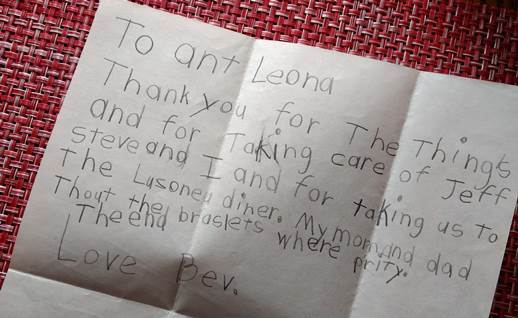 To ant Leona
Thank you for The Things
and for Taking care of Jeff
steve and I and for taking us to
the Lusoney diner. My mom and dad
Thout the braslets where prity.
The end
Love Bev.